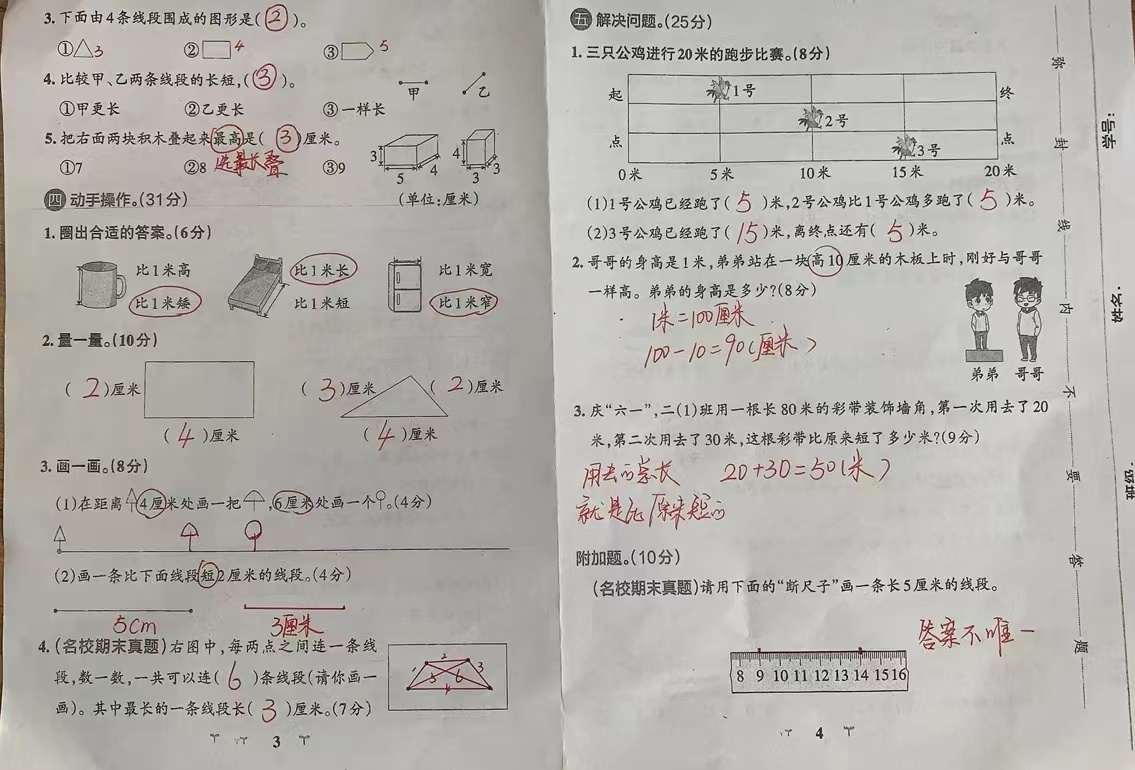 3.下面由4条线段围成的图形是(2)。
①3 ②4 ③5
4.比较甲、乙两条线段的长短,(③)。
甲 乙
①甲更长 ②乙更长 ③一样长
5.把右面两块积木叠起来最高是(3)厘米。
①7 ②8 选最长叠 ③9
3 5 4 4 3 3
四 动手操作。(31分) (单位:厘米)
1.圈出合适的答案。(6分)
比1米高 比1米长 比1米宽
比1米矮 比1米短 比1米窄
2.量一量。(10分)
(2)厘米 (3)厘米 (2)厘米
(4)厘米 (4)厘米
3.画一画。(8分)
(1)在距离4厘米处画一把,6厘米处画一个。(4分)
(2)画一条比下面线段短2厘米的线段。(4分)
5cm 3厘米
4.(名校期末真题)右图中,每两点之间连一条线
段,数一数,一共可以连(6)条线段(请你画一
画)。其中最长的一条线段长(3)厘米。(7分)
1 2 3 5 6 4
3
五 解决问题。(25分)
1.三只公鸡进行20米的跑步比赛。(8分)
起 1号 终
2号
点 3号 点
0米 5米 10米 15米 20米
(1)1号公鸡已经跑了(5)米,2号公鸡比1号公鸡多跑了(5)米。
(2)3号公鸡已经跑了(15)米,离终点还有(5)米。
2.哥哥的身高是1米,弟弟站在一块高10厘米的木板上时,刚好与哥哥
一样高。弟弟的身高是多少?(8分)
1米=100厘米
100-10=90(厘米)
弟弟 哥哥
3.庆“六一”,二(1)班用一根长80米的彩带装饰墙角,第一次用去了20
米,第二次用去了30米,这根彩带比原来短了多少米?(9分)
用去的总长 20+30=50(米)
就是比原来短的
附加题。(10分)
(名校期末真题)请用下面的“断尺子”画一条长5厘米的线段。
答案不唯一
8 9 10 11 12 13 14 15 16
4
弥 封 线 内 不 要 答 题
学号:
姓名:
班级: